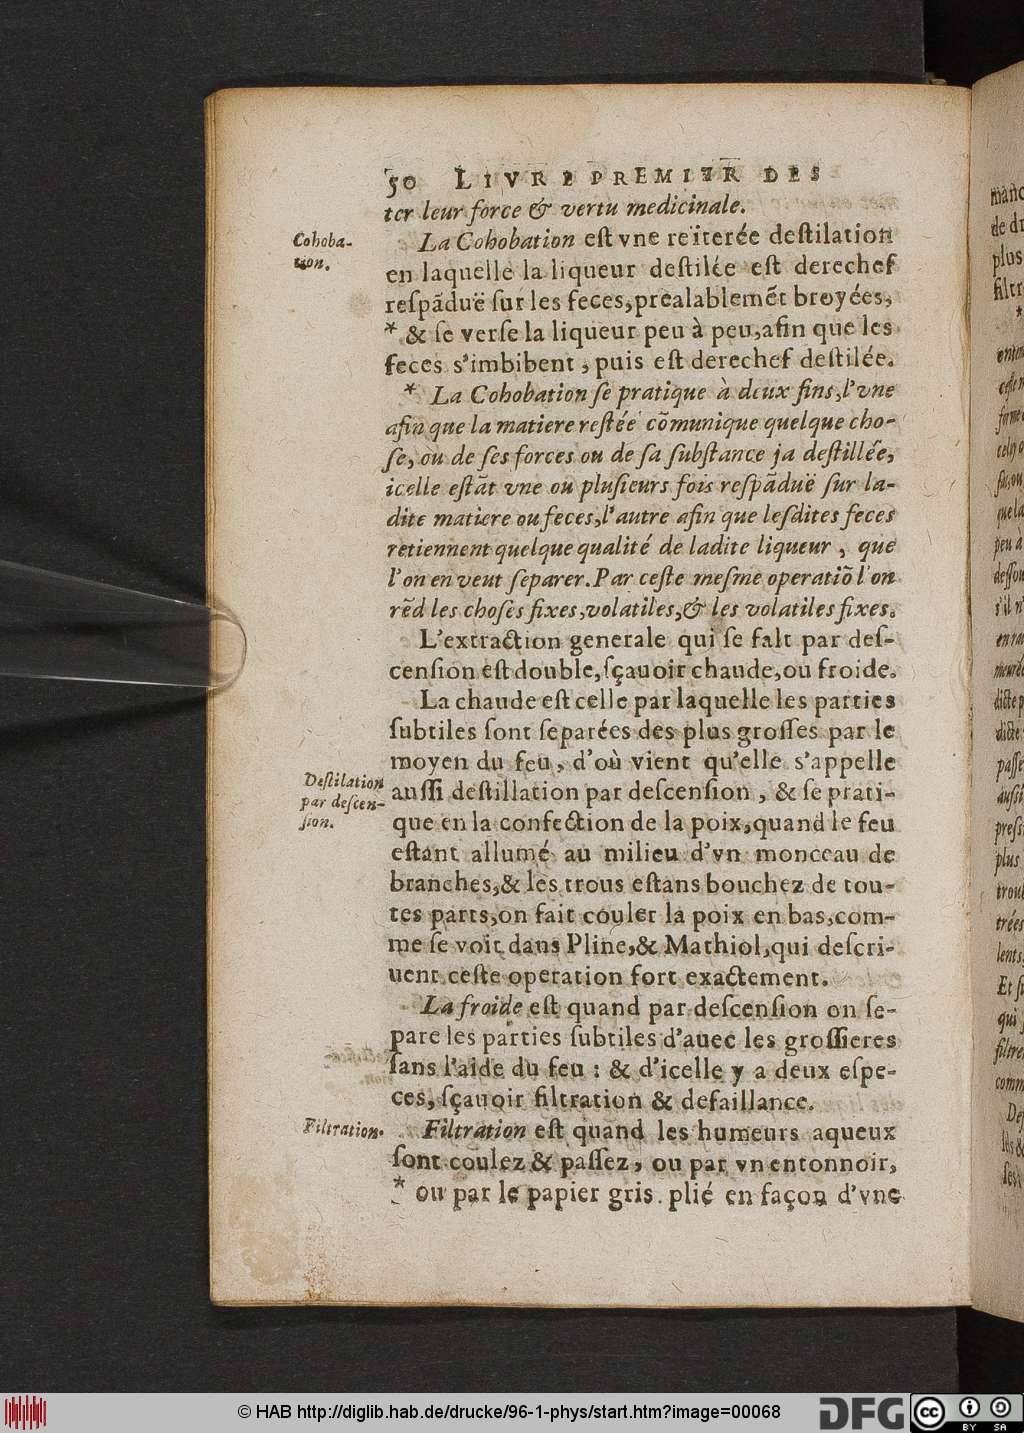 50 LIVRE PREMIER DES
ter leur force & vertu medicinale.
Cohoba-
tion.
La Cohobation eſt vne reïterée deſtilation
en laquelle la liqueur deſtilée eſt derechef
reſpãduë ſur les feces, prealablemẽt broyées,
* & ſe verſe la liqueur peu à peu, afin que les
feces s'imbibent, puis eſt derechef deſtilée.
* La Cohobation ſe pratique à deux fins, l'vne
afin que la matiere reſtée cõmunique quelque cho-
ſe, ou de ſes forces ou de ſa ſubſtance ja deſtillée,
icelle eſtãt vne ou pluſieurs fois reſpãduë ſur la-
dite matiere ou feces, l'autre afin que leſdites feces
retiennent quelque qualité de ladite liqueur, que
l'on en veut ſeparer. Par ceſte meſme operatiõ l'on
rẽd les choſes fixes, volatiles, & les volatiles fixes.
L'extraction generale qui ſe fait par deſ-
cenſion eſt double, ſçauoir chaude, ou froide.
La chaude eſt celle par laquelle les parties
ſubtiles ſont ſeparées des plus groſſes par le
moyen du feu, d'où vient qu'elle s'appelle
Deſtilation
par deſcen-
ſion.
auſſi deſtillation par deſcenſion, & ſe prati-
que en la confection de la poix, quand le feu
eſtant allumé au milieu d'vn monceau de
branches, & les trous eſtans bouchez de tou-
tes parts, on fait couler la poix en bas, com-
me ſe voit dans Pline, & Mathiol, qui deſcri-
uent ceſte operation fort exactement.
La froide eſt quand par deſcenſion on ſe-
pare les parties ſubtiles d'auec les groſſieres
ſans l'aide du feu : & d'icelle y a deux eſpe-
ces, ſçauoir filtration & defaillance.
Filtration.
Filtration eſt quand les humeurs aqueux
ſont coulez & paſſez, ou par vn entonnoir,
* ou par le papier gris plié en façon d'vne
de di
plus
peu à
s'il n'
plus
lents,
Et ſi
qui
© HAB http://diglib.hab.de/drucke/96-1-phys/start.htm?image=00068
DFG
cc BY SA